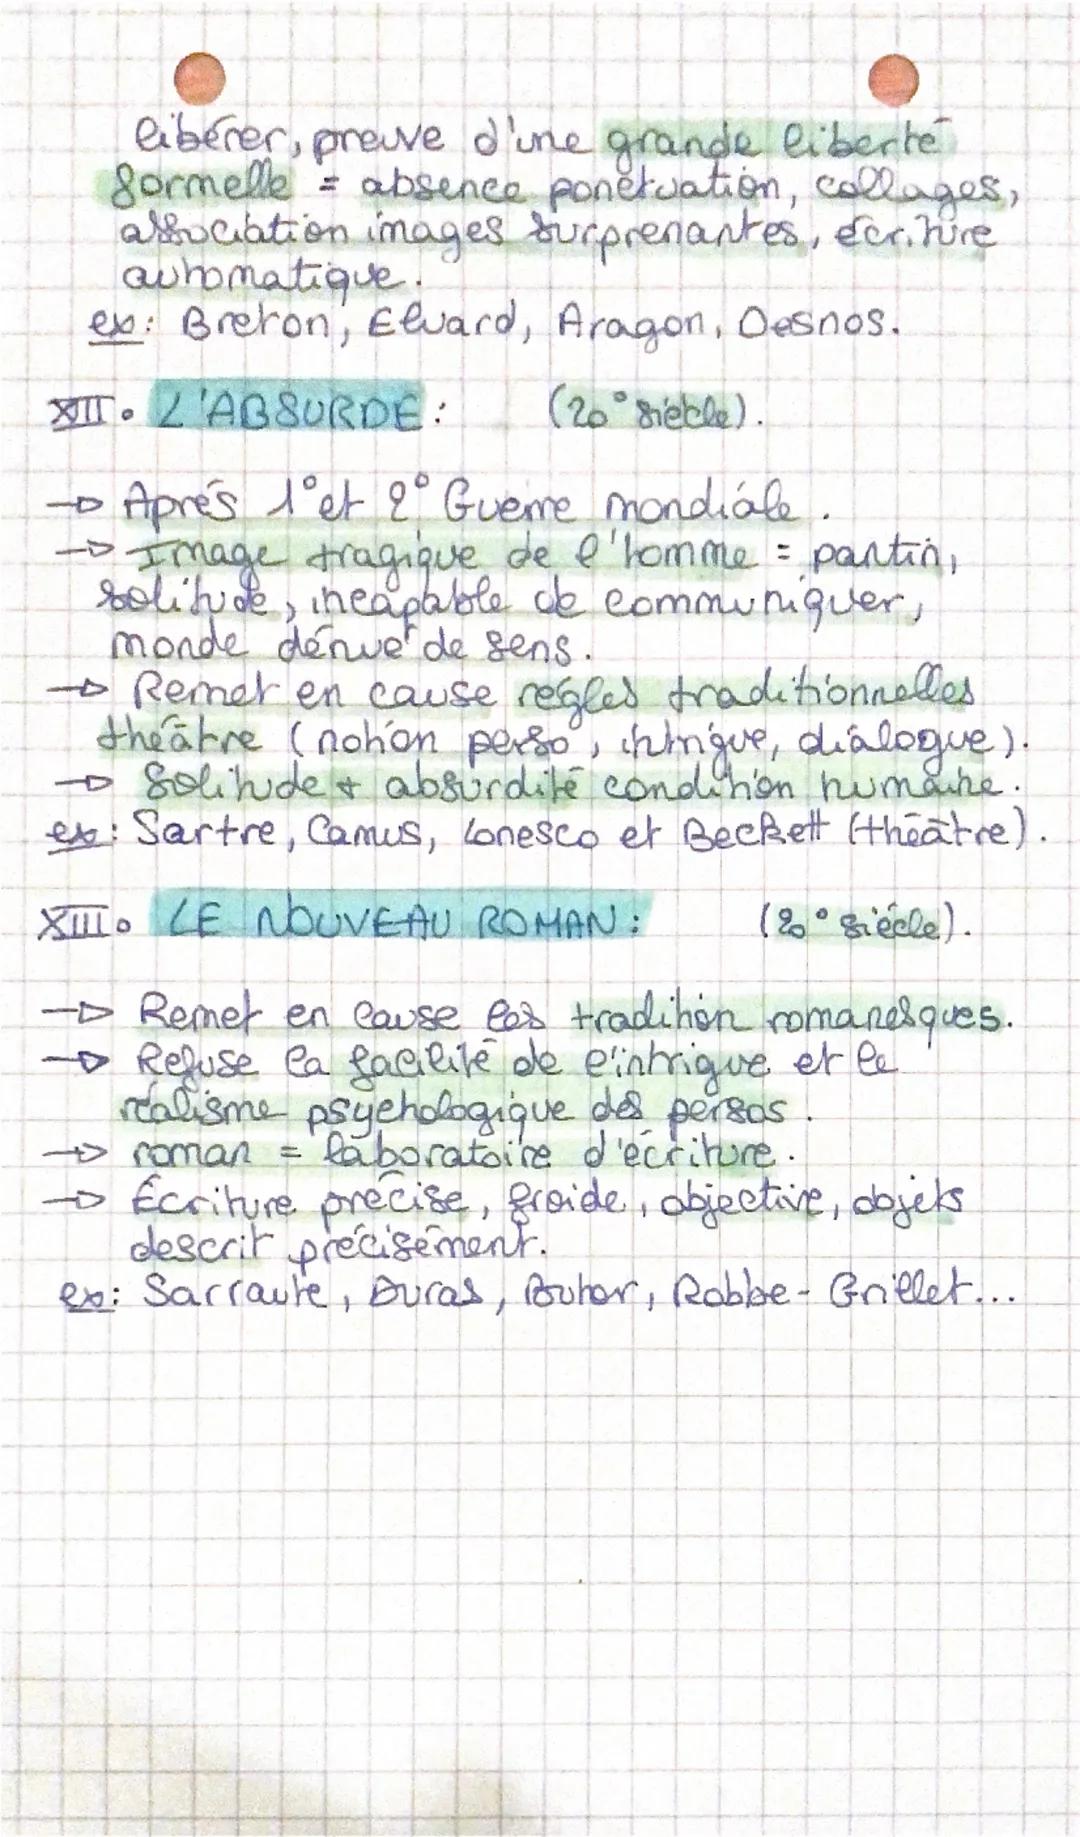 libérer, preuve d'une grande liberté
formelle = absence ponctuation, collages,
association images surprenantes, écriture
automatique.
ex: Breton, Eluard, Aragon, Desnos.
XII. L'ABSURDE: (20° siècle).
→ Après 1° et 2° Guerre mondiale.
→ Image tragique de l'homme = pantin,
solitude, incapable de communiquer,
monde dénué de sens.
→ Remet en cause règles traditionnelles
théâtre (notion perso, intrigue, dialogue).
→ Solitude + absurdité condition humaine.
ex: Sartre, Camus, Ionesco et Beckett (théâtre).
XIII. LE NOUVEAU ROMAN: (20° siècle).
→ Remet en cause les tradition romanesques.
→ Refuse la facilité de l'intrigue et le
réalisme psychologique des persos.
→ roman = laboratoire d'écriture.
→ Écriture précise, froide, objective, objets
descrit précisément.
ex: Sarraute, Duras, Butor, Robbe-Grillet...